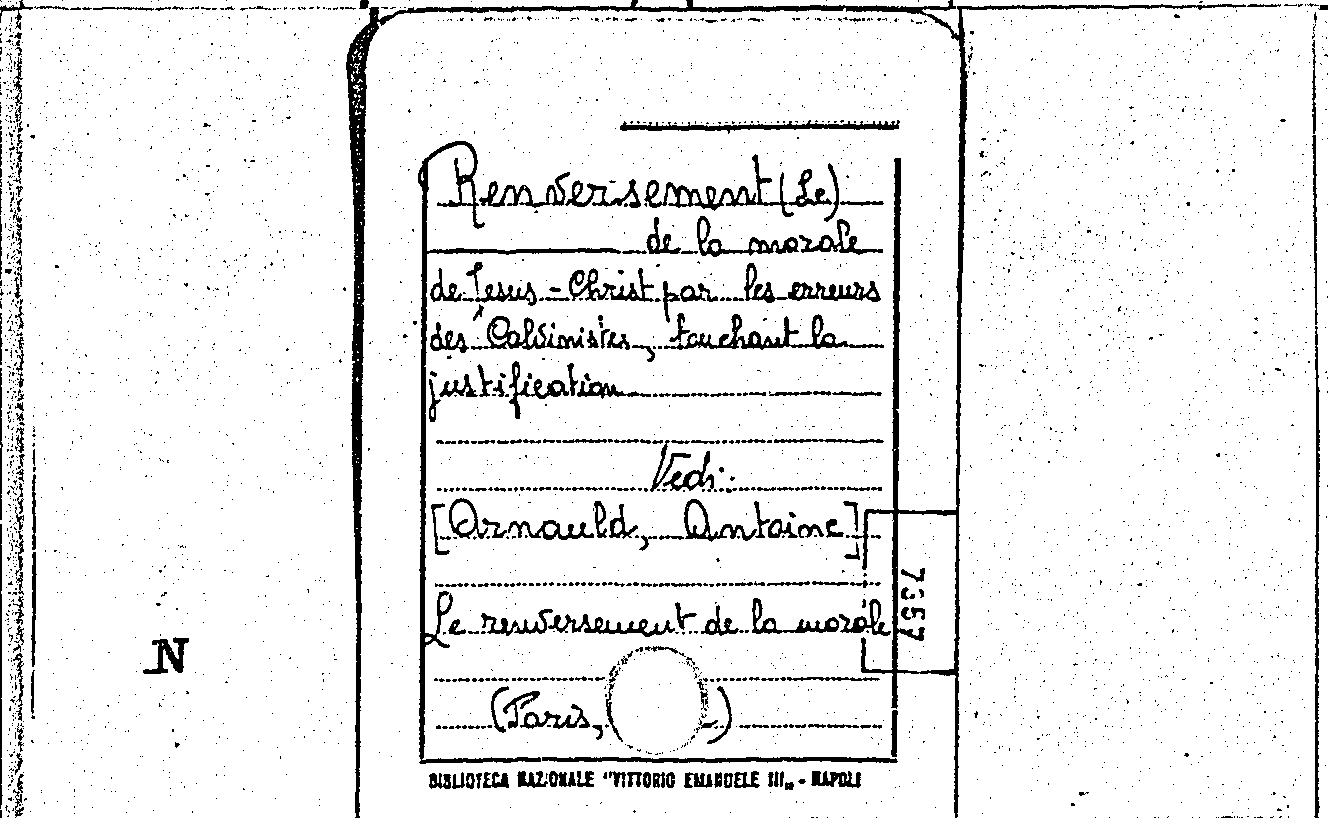 Renversement (Le)
de la morale
de Jesus-Christ par les erreurs
des Calvinistes, touchant la
justification
Vedi:
[Arnauld, Antoine]
Le renversement de la morale
(Paris, )
BIBLIOTECA NAZIONALE "VITTORIO EMANUELE III„ - NAPOLI
7357
N